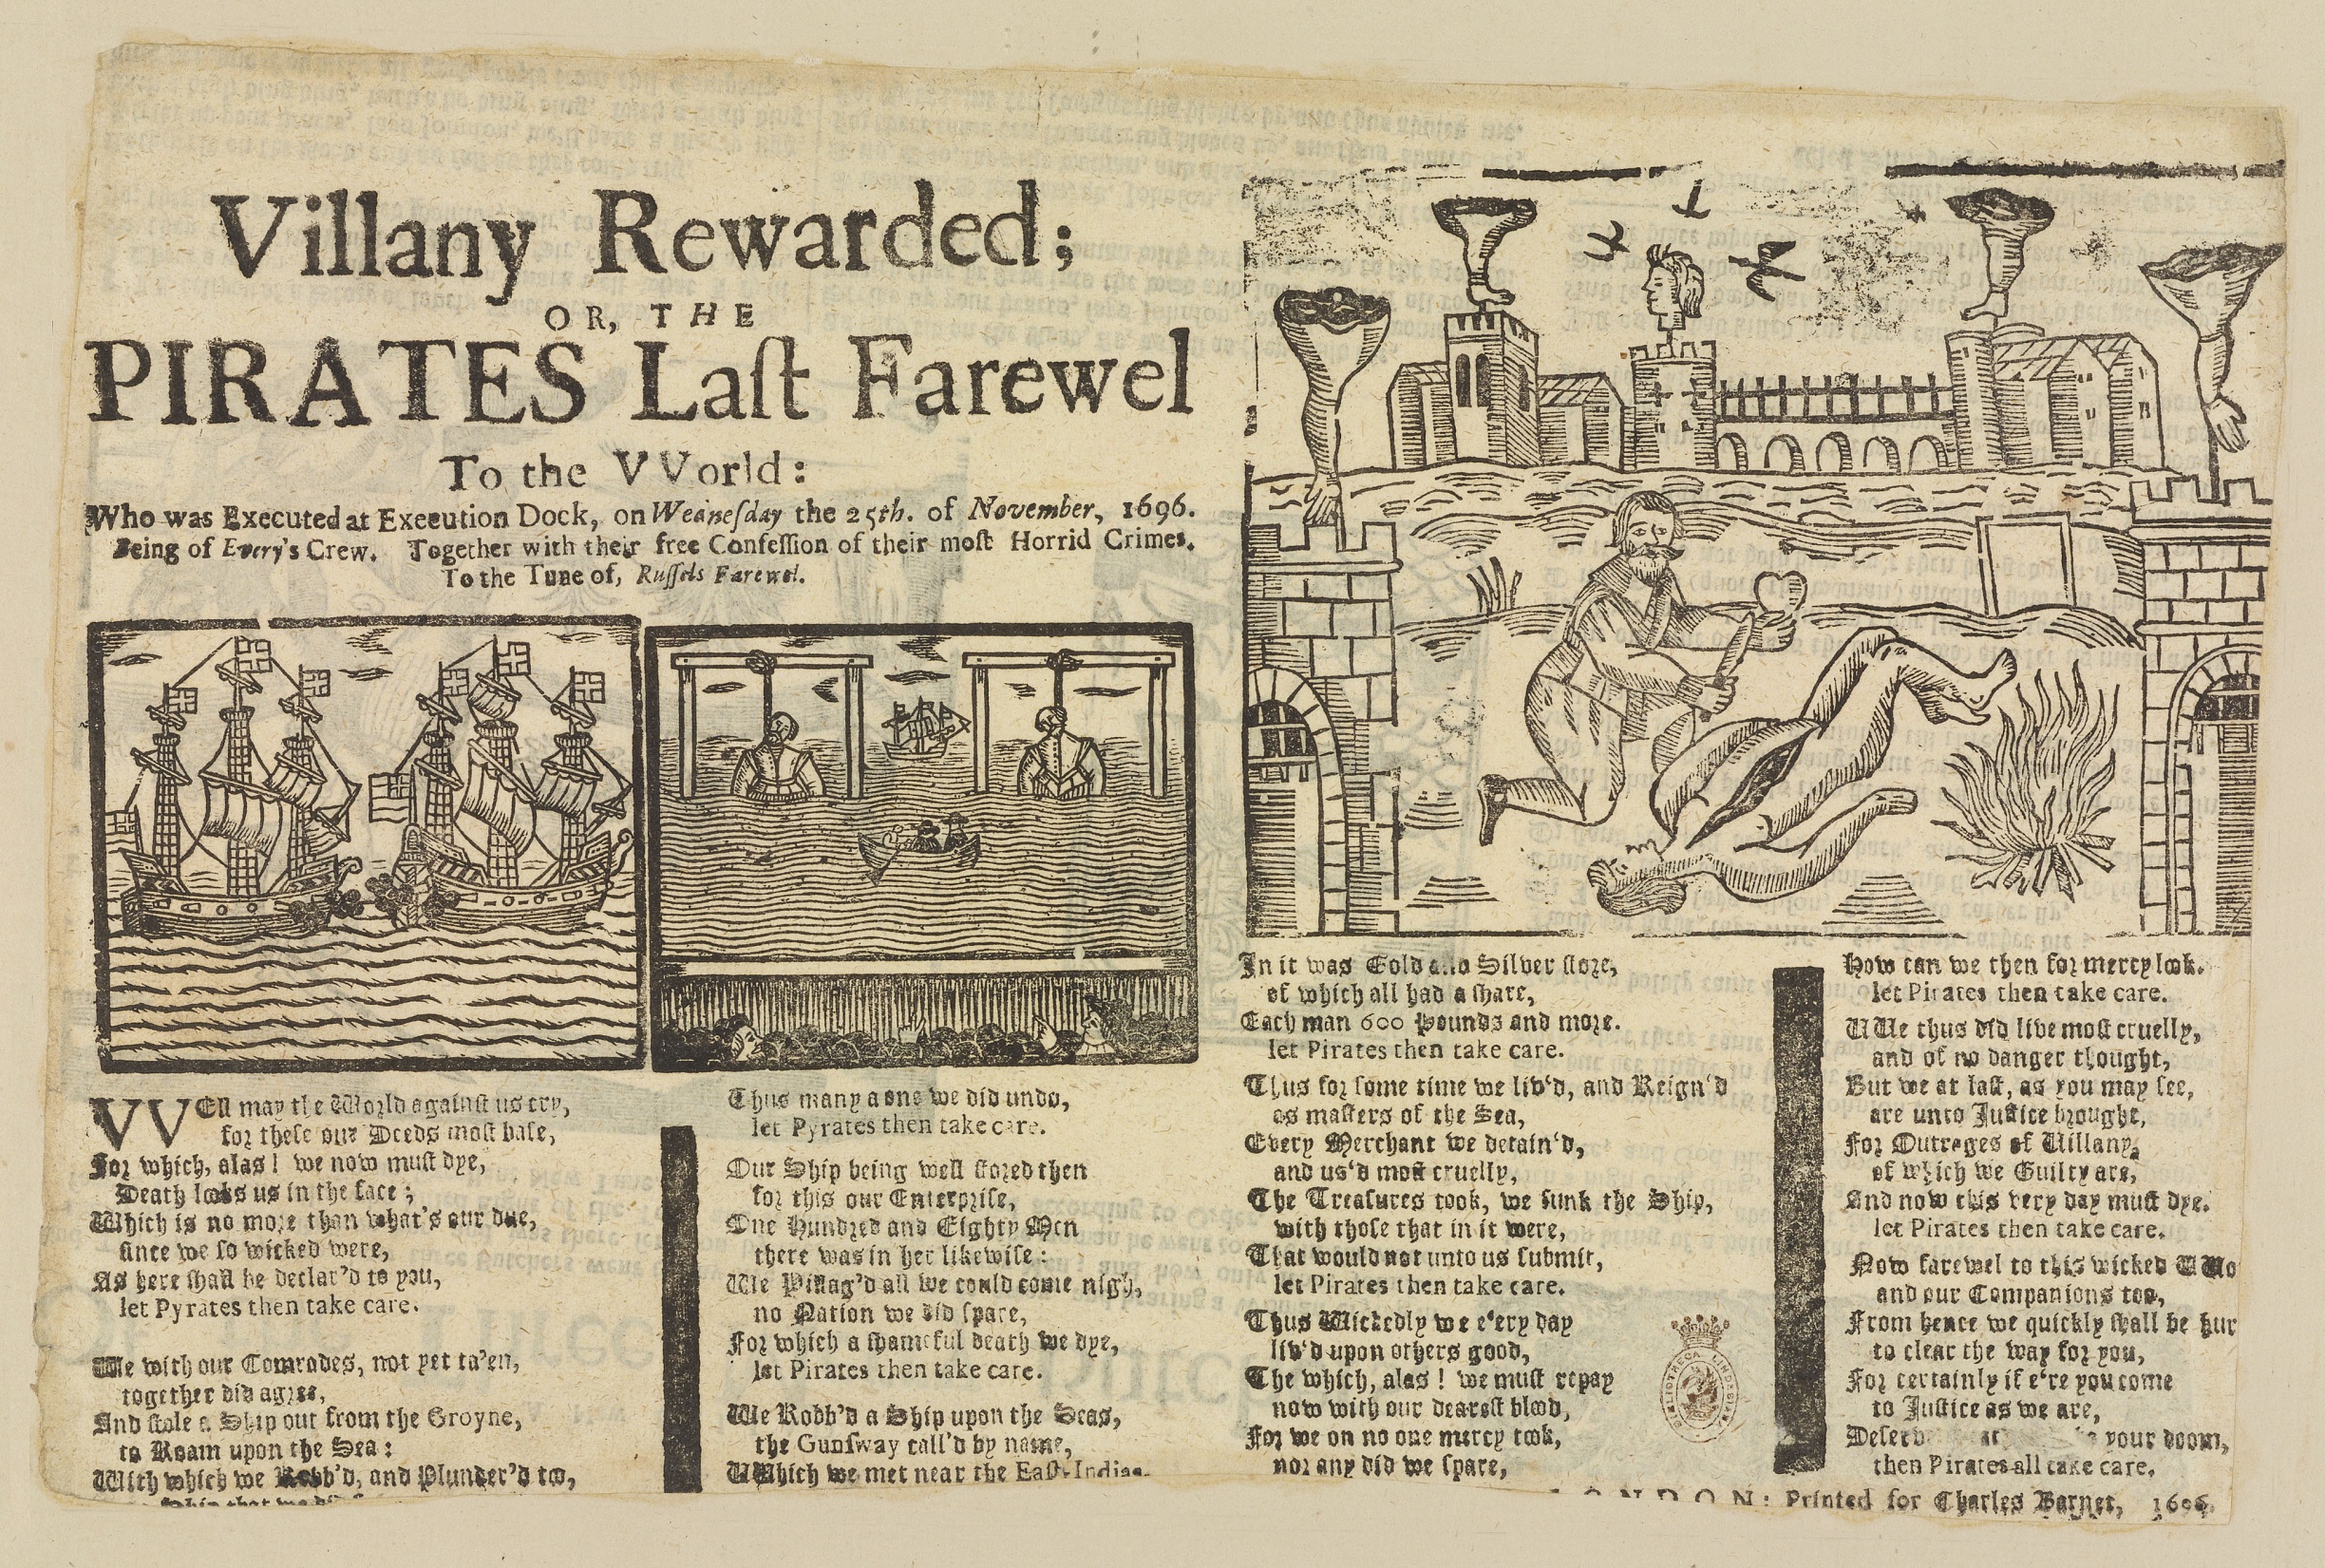 Villany Rewarded;
OR, THE
PIRATES Laſt Farewel
To the VVorld:
Who was Executed at Execution Dock, on Wedneſday the 25th. of November, 1696.
Being of Every's Crew. Together with their free Confeſſion of their moſt Horrid Crimes.
To the Tune of, Ruſſels Farewel.
VVEll may the World againſt us cry,
for theſe our Deeds moſt baſe,
For which, alas! we now muſt dye,
Death looks us in the face;
Which is no more than what's our due,
ſince we ſo wicked were,
As here ſhall be declar'd to you,
let Pyrates then take care.
We with our Comrades, not yet ta'en,
together did agree,
And ſtole a Ship out from the Groyne,
to Roam upon the Sea:
With which we Robb'd, and Plunder'd too,
Ship that we did
Thus many a one we did undo,
let Pyrates then take care.
Our Ship being well ſtored then
for this our Enterpriſe,
One Hundred and Eighty Men
there was in her likewiſe:
We Pillag'd all we could come nigh,
no Nation we did ſpare,
For which a ſhameful death we dye,
let Pirates then take care.
We Robb'd a Ship upon the Seas,
the Gunſway call'd by name,
VVhich we met near the Eaſt-Indies
In it was Gold and Silver ſtore,
of which all had a ſhare,
Each man 600 Pounds and more.
let Pirates then take care.
Thus for ſome time we liv'd, and Reign'd
as maſters of the Sea,
Every Merchant we detain'd,
and us'd moſt cruelly,
The Treaſures took, we ſunk the Ship,
with thoſe that in it were,
That would not unto us ſubmit,
let Pirates then take care.
Thus Wickedly we e'ery day
liv'd upon others good,
The which, alas! we muſt repay
now with our deareſt blood,
For we on no one mercy took,
nor any did we ſpare,
How can we then for mercy look.
let Pirates then take care.
VVe thus did live moſt cruelly,
and of no danger thought,
But we at laſt, as you may ſee,
are unto Juſtice brought,
For Outrages of Villany,
of which we Guilty are,
And now this very day muſt dye.
let Pirates then take care.
Now farewel to this wicked VVo
and our Companions too,
From hence we quickly ſhall be hur
to clear the way for you,
For certainly if e're you come
to Juſtice as we are,
Deſerv your doom,
then Pirates all take care.
LONDON: Printed for Charles Barnet, 1696.
BIBLIOTHECA LINDESIANA